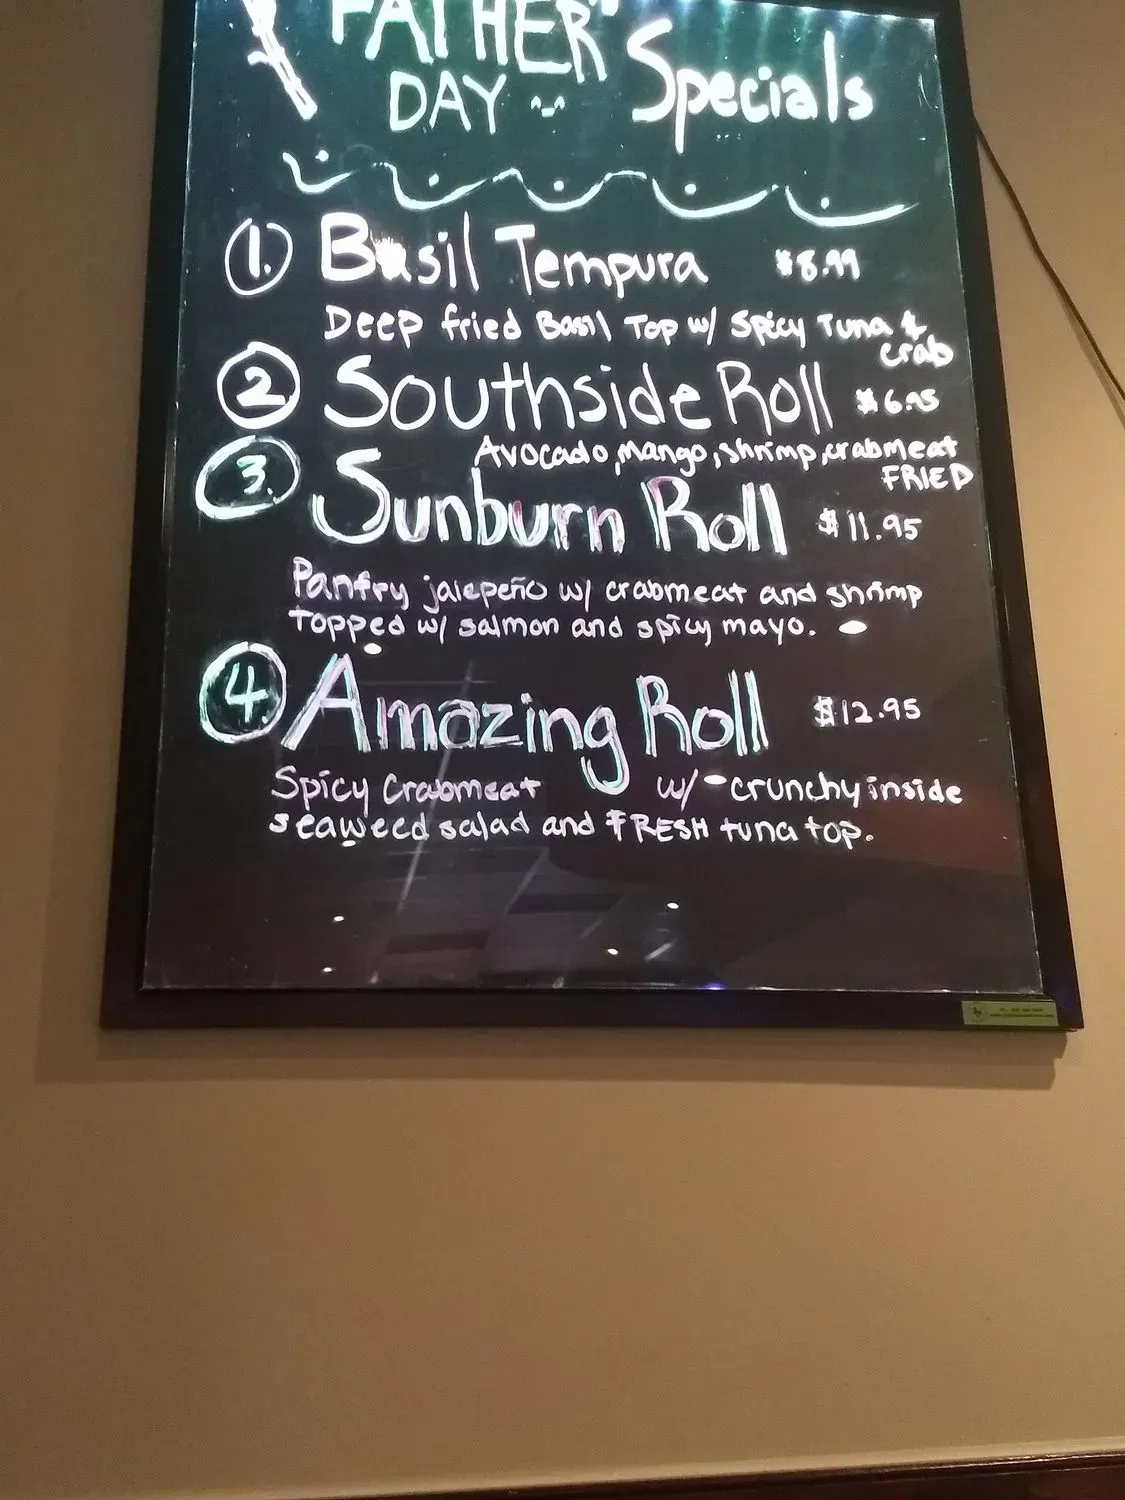 FATHER'
DAY
Specials
1. Basil Tempura $8.99
Deep fried Basil Top w/ Spicy Tuna &
crab
2 Southside Roll $6.95
Avocado, mango, shrimp, crabmeat
FRIED
3. Sunburn Roll $11.95
Panfry jalepeño w/ crabmeat and shrimp
topped w/ salmon and spicy mayo.
4. Amazing Roll $12.95
Spicy Crabmeat w/ crunchy inside
seaweed salad and FRESH tuna top.